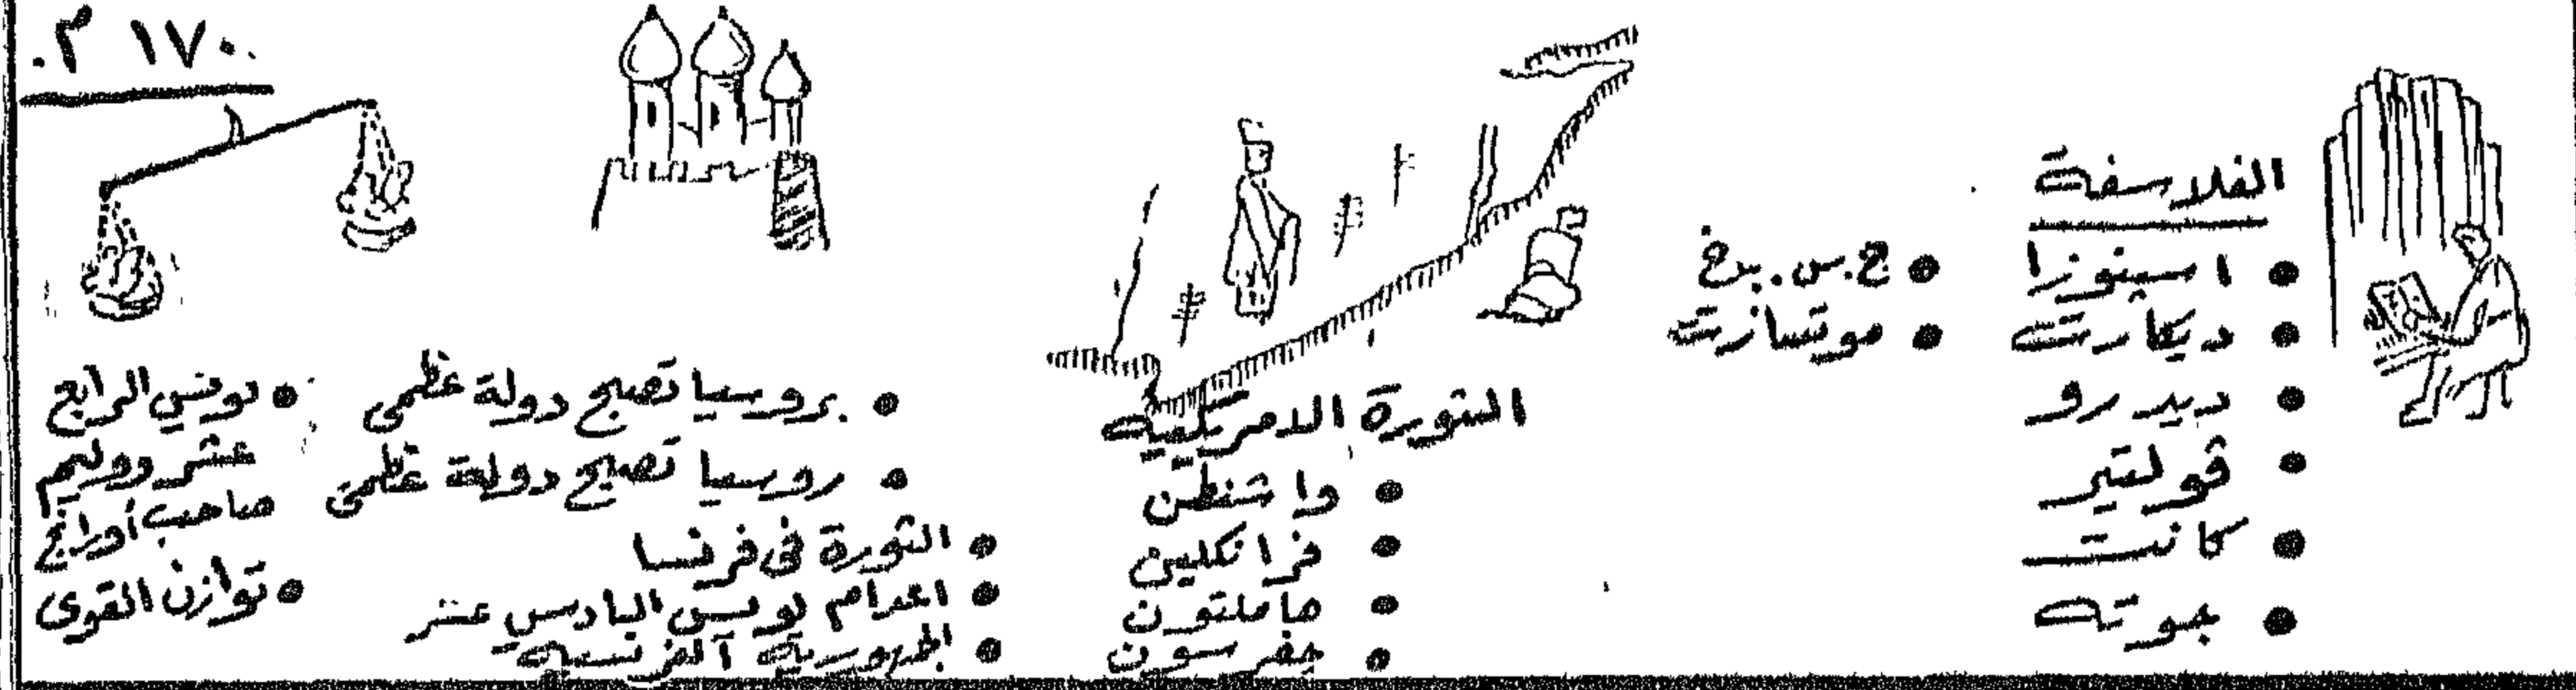 ١٧٠٠ م.
الفلاسفة
• اسبينوزا
• ديكارت
• ديدرو
• ڤولتير
• كانت
• جوته
• ج.س. برخ
• موتسارت
الثورة الامريكية
• واشنطن
• فرانكلين
• هاملتون
• جفرسون
• بروسيا تصبح دولة عظمى
• روسيا تصبح دولة عظمى
• الثورة فى فرنسا
• اعدام لويس السادس عشر
• الجمهورية الفرنسية
• لويس الرابع
عشر ووليم
صاحب أورانج
• توازن القوى